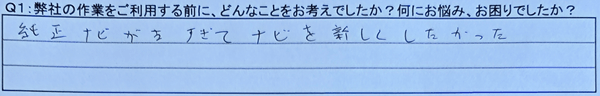 Q1:弊社の作業をご利用する前に、どんなことをお考えでしたか?何にお悩み、お困りでしたか?
純正ナビが古すぎてナビを新しくしたかった